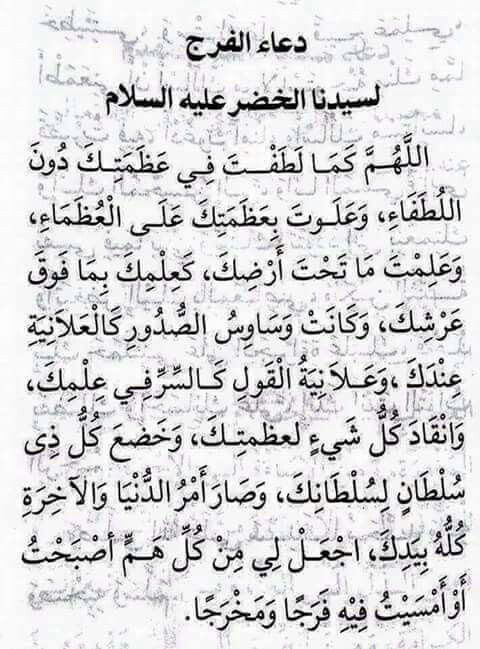 دعاء الفرج
لسيدنا الخضر عليه السلام
اللَّهُمَّ كَمَا لَطَفْتَ فِي عَظَمَتِكَ دُونَ
اللُطَفَاءِ، وَعَلَوتَ بِعَظَمَتِكَ عَلَى الْعُظَمَاءِ،
وَعَلِمْتَ مَا تَحْتَ أَرْضِكَ، كَعِلْمِكَ بِمَا فَوقَ
عَرْشِكَ، وَكَانَتْ وَسَاوِسُ الصُّدُورِ كَالْعَلَانِيَةِ
عِنْدَكَ، وَعَلَانِيَةُ الْقَولِ كَالسِّرِّ فِي عِلْمِكَ،
وَانْقَادَ كُلُّ شَيءٍ لعظمتِكَ، وَخَضعَ كُلُّ ذِى
سُلْطَانٍ لِسُلْطَانِكَ، وَصَارَ أَمْرُ الدُّنْيَا وَالآخِرَةِ
كُلُّهُ بِيَدِكَ، اجْعَلْ لِي مِنْ كُلِّ هَمٍّ أصْبَحْتُ
أَوْ أَمْسَيْتُ فِيْهِ فَرَجًا وَمَخْرَجًا.